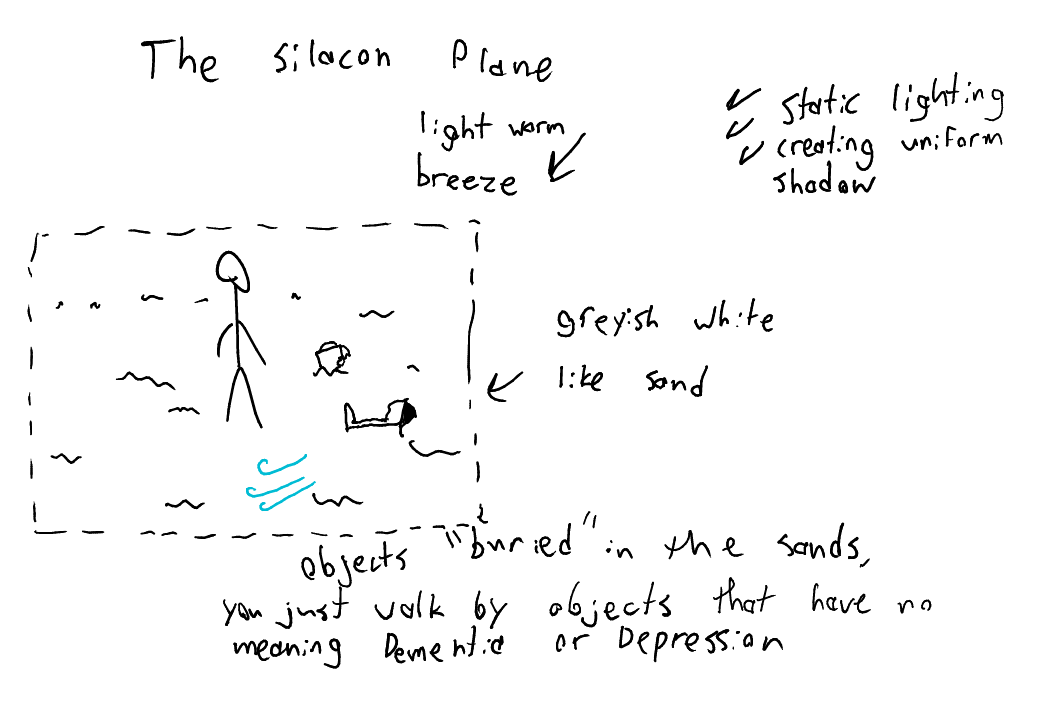 The silacon Plane
light warm
breeze
static lighting
creating uniform
shadow
greyish white
like sand
objects "buried" in the sands,
you just walk by objects that have no
meaning Dementia or Depression